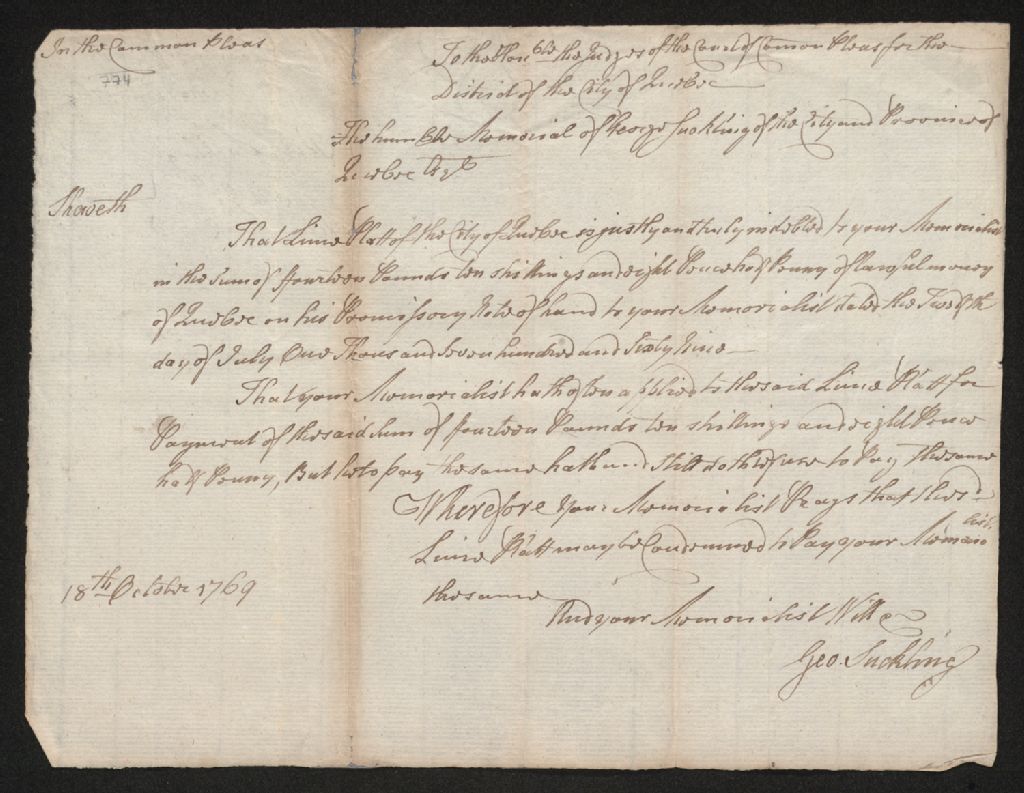 In the Common Pleas
774
To the Hon.ble the Judges of the Court of Comon Pleas for the
District of the City of Quebec
The humble Memorial of George Suckling of the City and Province of
Quebec Esqr
Sheweth
That Lime Platt of the City of Quebec is justly and truly indebted to your Memorialist
in the Sum of ffourteen Pounds ten shillings and eight Pence half Penny of lawful money
of Quebec on his Promissory Note of hand to your Memorialist dated the Twelfth
day of July One Thousand Seven hundred and Sixty Nine
That your Memorialist hath often applied to the said Lime Platt for
Payment of the said Sum of ffourteen Pounds ten shillings and eight Pence
half Penny, But he to pay the same hath and Still doth refuse to Pay the same
Wherefore your Memorialist Prays that the sd
Lime Platt may be Condemned to Pay your Memorialist
the same
And your Memorialist Will &c
18th October 1769
Geo. Suckling